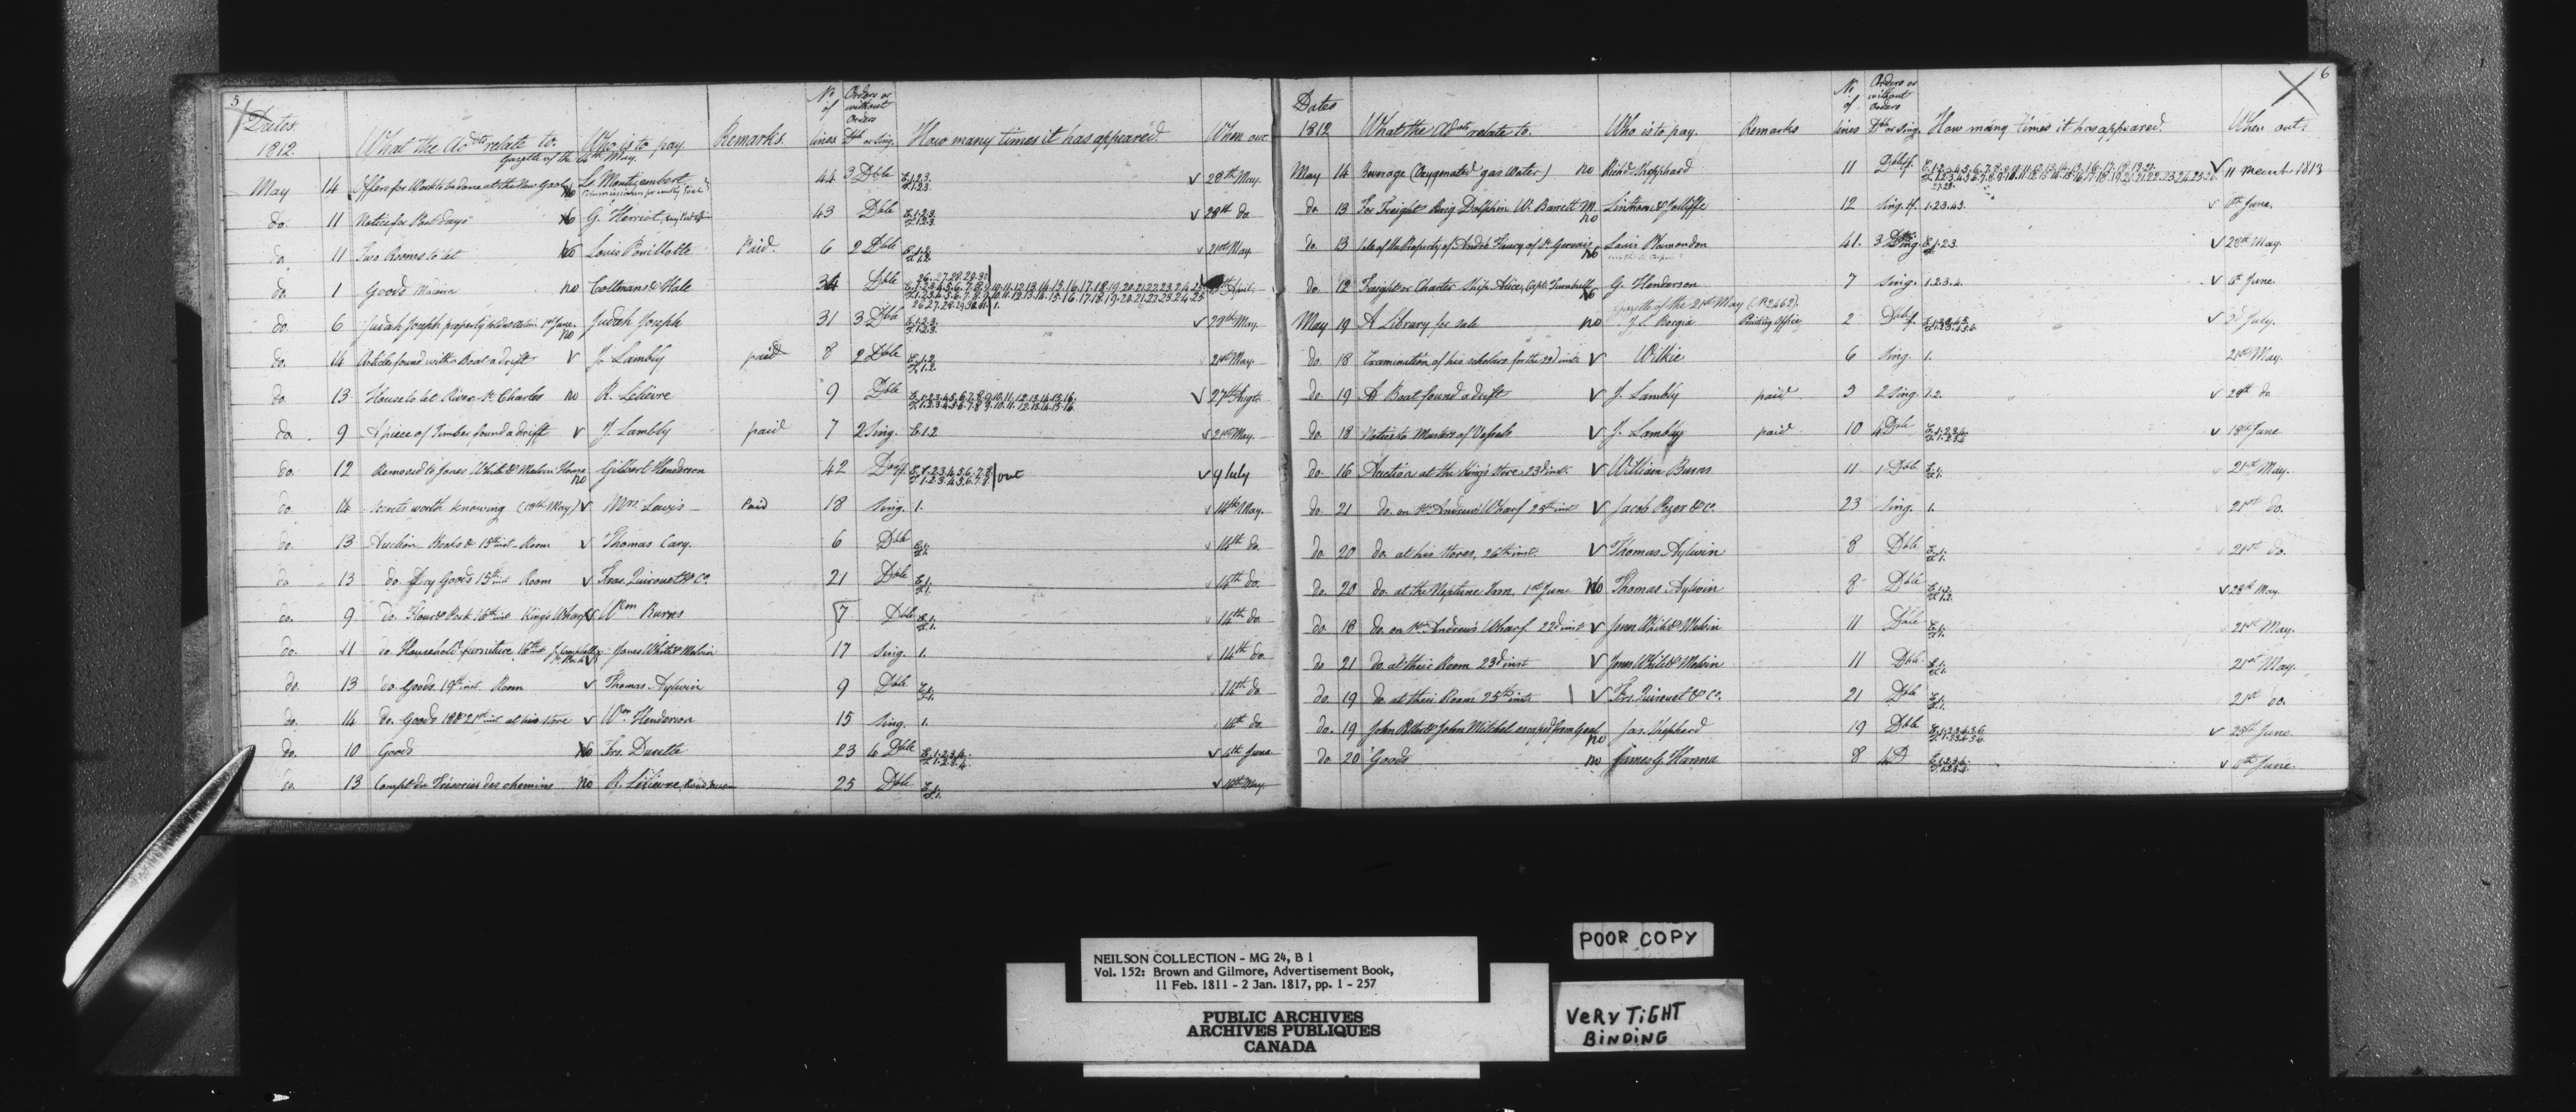 5
Dates 1812. What the Ad.ts relate to. Who is to pay Remarks. No of lines Orders or without Orders Dble or Sing. How many times it has appeared. When out
Gazette of the 14th May.
May 14 Offers for Work to be done at the New Gaol no Ls. Montizembert 44 3 Dble E.1.2.3. F.1.2.3. v 28th May.
do. 11 Notice for Post days no G. Heriot 43 Dble E.1.2.3. F.1.2.3. v 28th do.
do. 11 Two Rooms to let no Louis Paid. 6 2 Dble E.1.2. F.1.2. v 21st May.
do. 1 Goods Madeira no Coltmans & Hale 34 Dble
do. 6 Judah Joseph property no Judah Joseph 31 3 Dble E.1.2.3. F.1.2.3. v 28th May.
do. 14 Articles found with a Boat adrift v J. Lambly paid 8 2 Dble E.1.2. F.1.2. 21st May.
do. 13 House to let River St. Charles no R. Lelievre 9 Dble E.1.2.3.4.5.6.7.8.9.10.11.12.13.14.15.16. F.1.2.3.4.5.6.7.8.9.10.11.12.13.14.15.16. v 27th Augt.
do. 9 A piece of Timber found adrift v J. Lambly paid 7 2 Sing. E.1.2 v 21st May.
do. 12 Removed to Jones White & Melvin House no Gilbert Henderson 42 E.1.2.3.4.5.6.7.8 F.1.2.3.4.5.6.7.8 out v 9 July
do. 14 Secrets worth knowing v Mrs. Lewis Paid 18 Sing. 1. v 14th May.
do. 13 Auction Books & 15th inst. Room v Thomas Cary. 6 Dble E.1. F.1. v 14th do.
do. 13 do. Dry Goods 15th inst Room v Fras. Quirouet & Co. 21 Dble E.1. F.1. v 14th do.
do. 9 do. Flour & Pork 16th inst King's Wharf v Wm Burns 7 Dble E.1. F.1. v 14th do.
do. 11 do. Household furniture 16th inst v Jones White & Melvin 17 Sing. 1. v 14th do.
do. 13 do. Goods 19th inst. Room v Thomas Aylwin 9 Dble E.1. F.1. v 14th do.
do. 14 do. Goods 18th & 21st inst at his store v Wm. Henderson 15 Sing. 1. 14th do.
do. 10 Goods no Frs. Durette 23 4 Dble E.1.2.3.4. F.1.2.3.4. v 4th June
do. 13 Compte du Trésorier des chemins no R. Lelievre 25 Dble E.1. F.1. v 14th May.
6
Dates 1812 What the Ad.ts relate to. Who is to pay. Remarks No of lines Orders or without Orders Dble or Sing. How many times it has appeared. When out.
May 14 Beverage (Oxygenated gas Water) no Richd Sheppard 11 v 11 March 1813
do. 13 For Freight Brig Dolphin W. Barrett M. no Linthorne & Jolliffe 12 Sing. 1.2.3.4. v June.
do. 13 Sale of the Property of André of St. Gervais no Louis Plamondon 41. 3 E.1.2.3. v 28th May.
do. 12 Freight or Charter Ship Alice, Capt. Turnbull no G. Henderson 7 Sing. 1.2.3.4. v June
Gazette of the 21st May (No. 2462).
May 19 A Library for sale no J. L. Borgia Printing Office 2 v 2d July.
do. 18 Examination of his scholars for the 22d inst. v Wilkie 6 Sing. 1. 21st May.
do. 19 A Boat found adrift v J. Lambly paid 5 2 Sing. 1.2. v 28th do
do. 18 Notice to Masters of Vessels v J. Lambly paid 10 4 Dble E.1.2.3.4. F.1.2.3.4. v 18th June
do. 16 Auction at the King's store 23d inst. v William Burns 11 1 Dble E.1. F.1. 21st May.
do. 21 do. on St. Andrew's Wharf 25th inst v Jacob Pozer & Co. 23 Sing. 1. 21st do.
do. 20 do. at his Stores, 26th inst v Thomas Aylwin 8 Dble E.1. F.1. 21st do.
do. 20 do. at the Neptune Inn, 1st June no Thomas Aylwin 8 Dble E.1.2. F.1.2. v 28th May.
do. 18 do. on St. Andrew's Wharf 22d inst v Jones White & Melvin 11 Dble E.1. F.1. 21st May.
do. 21 do. at their Room 23d inst v Jones White & Melvin 11 Dble E.1. F.1. 21st May.
do. 19 do. at their Room 25th inst. v Frs. Quirouet & Co. 21 Dble E.1. F.1. 21st do.
do. 19 John Peter & John Mitchel escaped from Gaol no Jas. Shepherd 19 Dble E.1.2.3.4.5.6 F.1.2.3.4.5.6 v 25th June
do. 20 Goods no James G. Hanna 8 4 D E.1.2.3.4. F.1.2.3.4. v June.
POOR COPY
NEILSON COLLECTION - MG 24, B 1
Vol. 152: Brown and Gilmore, Advertisement Book,
11 Feb. 1811 - 2 Jan. 1817, pp. 1 - 257
PUBLIC ARCHIVES
ARCHIVES PUBLIQUES
CANADA
VERY TIGHT
BINDING